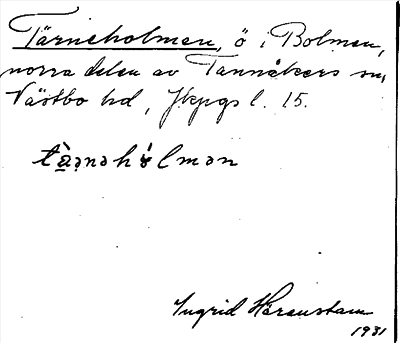 Tärneholmen, ö i Bolmen,
norra delen av Tannåkers sn,
Västbo hd, Jkpgs l. 15.
tä̀ənəhólmən
Ingrid Häraustam
1931